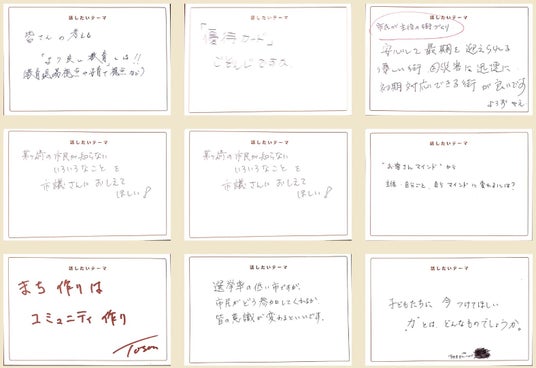 話したいテーマ
皆さんの考える
"より良い教育"とは!!
話したいテーマ
「優待カード」
ご存じですか
話したいテーマ
市民が主役の街づくり
安心して最期を迎えられる
優しい街 回災害に迅速に
対応できる街が良いです
話したいテーマ
茅ヶ崎の市民が知らない
いろいろなことを
市議さんにおしえて
ほしい!
話したいテーマ
茅ヶ崎の市民が知らない
いろいろなことを
市議さんにおしえて
ほしい!
話したいテーマ
"お客さんマインド"から
主体・自分ごと、自らマインドに変わるには?
話したいテーマ
まち作りは
コミュニティ作り
Tosen
話したいテーマ
選挙率の低い市ですが、
市民がどう参加してくれるか
皆の意識が変わるといいです。
話したいテーマ
子どもたちに今つけてほしい
力とは、どんなものでしょうか。